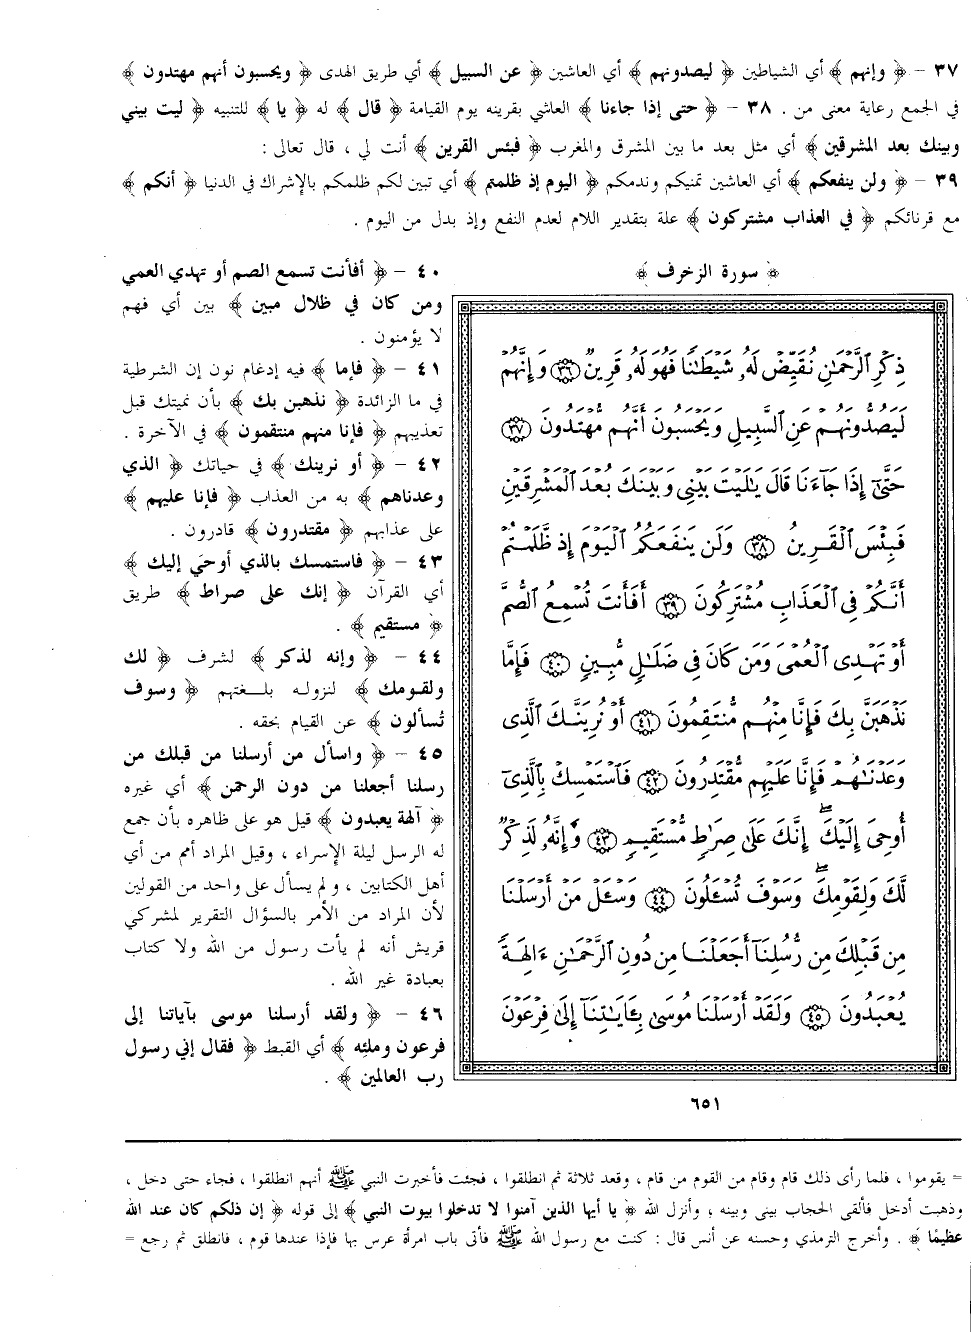 ٣٧ - ﴿ وإنهم ﴾ أي الشياطين ﴿ ليصدونهم ﴾ أي العاشين ﴿ عن السبيل ﴾ أي طريق الهدى ﴿ ويحسبون أنهم مهتدون ﴾
في الجمع رعاية معنى من . ٣٨ - ﴿ حتى إذا جاءنا ﴾ العاشي بقرينه يوم القيامة ﴿ قال ﴾ له ﴿ يا ﴾ للتنبيه ﴿ ليت بيني
وبينك بعد المشرقين ﴾ أي مثل بعد ما بين المشرق والمغرب ﴿ فبئس القرين ﴾ أنت لي ، قال تعالى :
٣٩ - ﴿ ولن ينفعكم ﴾ أي العاشين تمنيكم وندمكم ﴿ اليوم إذ ظلمتم ﴾ أي تبين لكم ظلمكم بالإشراك في الدنيا ﴿ أنكم ﴾
مع قرنائكم ﴿ في العذاب مشتركون ﴾ علة بتقدير اللام لعدم النفع وإذ بدل من اليوم .
﴿ سورة الزخرف ﴾
ذِكْرِ ٱلرَّحْمَٰنِ نُقَيِّضْ لَهُۥ شَيْطَٰنًا فَهُوَ لَهُۥ قَرِينٌ ﴿٣٦﴾ وَإِنَّهُمْ
لَيَصُدُّونَهُمْ عَنِ ٱلسَّبِيلِ وَيَحْسَبُونَ أَنَّهُم مُّهْتَدُونَ ﴿٣٧﴾
حَتَّىٰٓ إِذَا جَآءَنَا قَالَ يَٰلَيْتَ بَيْنِى وَبَيْنَكَ بُعْدَ ٱلْمَشْرِقَيْنِ
فَبِئْسَ ٱلْقَرِينُ ﴿٣٨﴾ وَلَن يَنفَعَكُمُ ٱلْيَوْمَ إِذ ظَّلَمْتُمْ
أَنَّكُمْ فِى ٱلْعَذَابِ مُشْتَرِكُونَ ﴿٣٩﴾ أَفَأَنتَ تُسْمِعُ ٱلصُّمَّ
أَوْ تَهْدِى ٱلْعُمْىَ وَمَن كَانَ فِى ضَلَٰلٍ مُّبِينٍ ﴿٤٠﴾ فَإِمَّا
نَذْهَبَنَّ بِكَ فَإِنَّا مِنْهُم مُّنتَقِمُونَ ﴿٤١﴾ أَوْ نُرِيَنَّكَ ٱلَّذِى
وَعَدْنَٰهُمْ فَإِنَّا عَلَيْهِم مُّقْتَدِرُونَ ﴿٤٢﴾ فَٱسْتَمْسِكْ بِٱلَّذِىٓ
أُوحِىَ إِلَيْكَ ۖ إِنَّكَ عَلَىٰ صِرَٰطٍ مُّسْتَقِيمٍ ﴿٤٣﴾ وَإِنَّهُۥ لَذِكْرٌ
لَّكَ وَلِقَوْمِكَ ۖ وَسَوْفَ تُسْـَٔلُونَ ﴿٤٤﴾ وَسْـَٔلْ مَنْ أَرْسَلْنَا
مِن قَبْلِكَ مِن رُّسُلِنَآ أَجَعَلْنَا مِن دُونِ ٱلرَّحْمَٰنِ ءَالِهَةً
يُعْبَدُونَ ﴿٤٥﴾ وَلَقَدْ أَرْسَلْنَا مُوسَىٰ بِـَٔايَٰتِنَآ إِلَىٰ فِرْعَوْنَ
٤٠ - ﴿ أفأنت تسمع الصم أو تهدي العمي
ومن كان في ظلال مبين ﴾ بين أي فهم
لا يؤمنون .
٤١ - ﴿ فإما ﴾ فيه إدغام نون إن الشرطية
في ما الزائدة ﴿ نذهبن بك ﴾ بأن نميتك قبل
تعذيبهم ﴿ فإنا منهم منتقمون ﴾ في الآخرة .
٤٢ - ﴿ أو نرينك ﴾ في حياتك ﴿ الذي
وعدناهم ﴾ به من العذاب ﴿ فإنا عليهم ﴾
على عذابهم ﴿ مقتدرون ﴾ قادرون .
٤٣ - ﴿ فاستمسك بالذي أوحيَ إليك ﴾
أي القرآن ﴿ إنك على صراط ﴾ طريق
﴿ مستقيم ﴾ .
٤٤ - ﴿ وإنه لذكر ﴾ لشرف ﴿ لك
ولقومك ﴾ لنزوله بلغتهم ﴿ وسوف
تُسألون ﴾ عن القيام بحقه .
٤٥ - ﴿ واسأل من أرسلنا من قبلك من
رسلنا أجعلنا من دون الرحمن ﴾ أي غيره
﴿ آلهة يعبدون ﴾ قيل هو على ظاهره بأن جمع
له الرسل ليلة الإسراء ، وقيل المراد أمم من أي
أهل الكتابين ، ولم يسأل على واحد من القولين
لأن المراد من الأمر بالسؤال التقرير لمشركي
قريش أنه لم يأت رسول من الله ولا كتاب
بعبادة غير الله .
٤٦ - ﴿ ولقد أرسلنا موسى بآياتنا إلى
فرعون وملئِه ﴾ أي القبط ﴿ فقال إني رسول
رب العالمين ﴾ .
٦٥١
= يقوموا ، فلما رأى ذلك قام وقام من القوم من قام ، وقعد ثلاثة ثم انطلقوا ، فجئت فأخبرت النبي ﷺ أنهم انطلقوا ، فجاء حتى دخل ،
وذهبت أدخل فألقى الحجاب بيني وبينه ، وأنزل الله ﴿ يا أيها الذين آمنوا لا تدخلوا بيوت النبي ﴾ إلى قوله ﴿ إن ذلكم كان عند الله
عظيمًا ﴾ . وأخرج الترمذي وحسنه عن أنس قال : كنت مع رسول الله ﷺ فأتى باب امرأة عرس بها فإذا عندها قوم ، فانطلق ثم رجع =